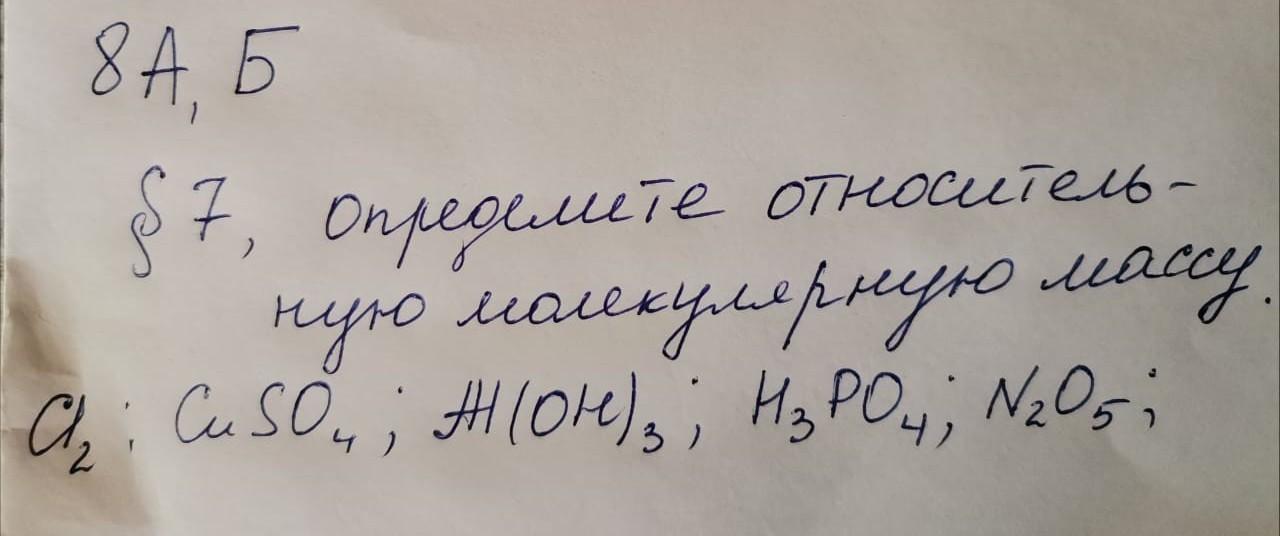 8А, Б
§ 7, определите относитель-
ную молекулярную массу.
Cl₂; CuSO₄; Al(OH)₃; H₃PO₄; N₂O₅;